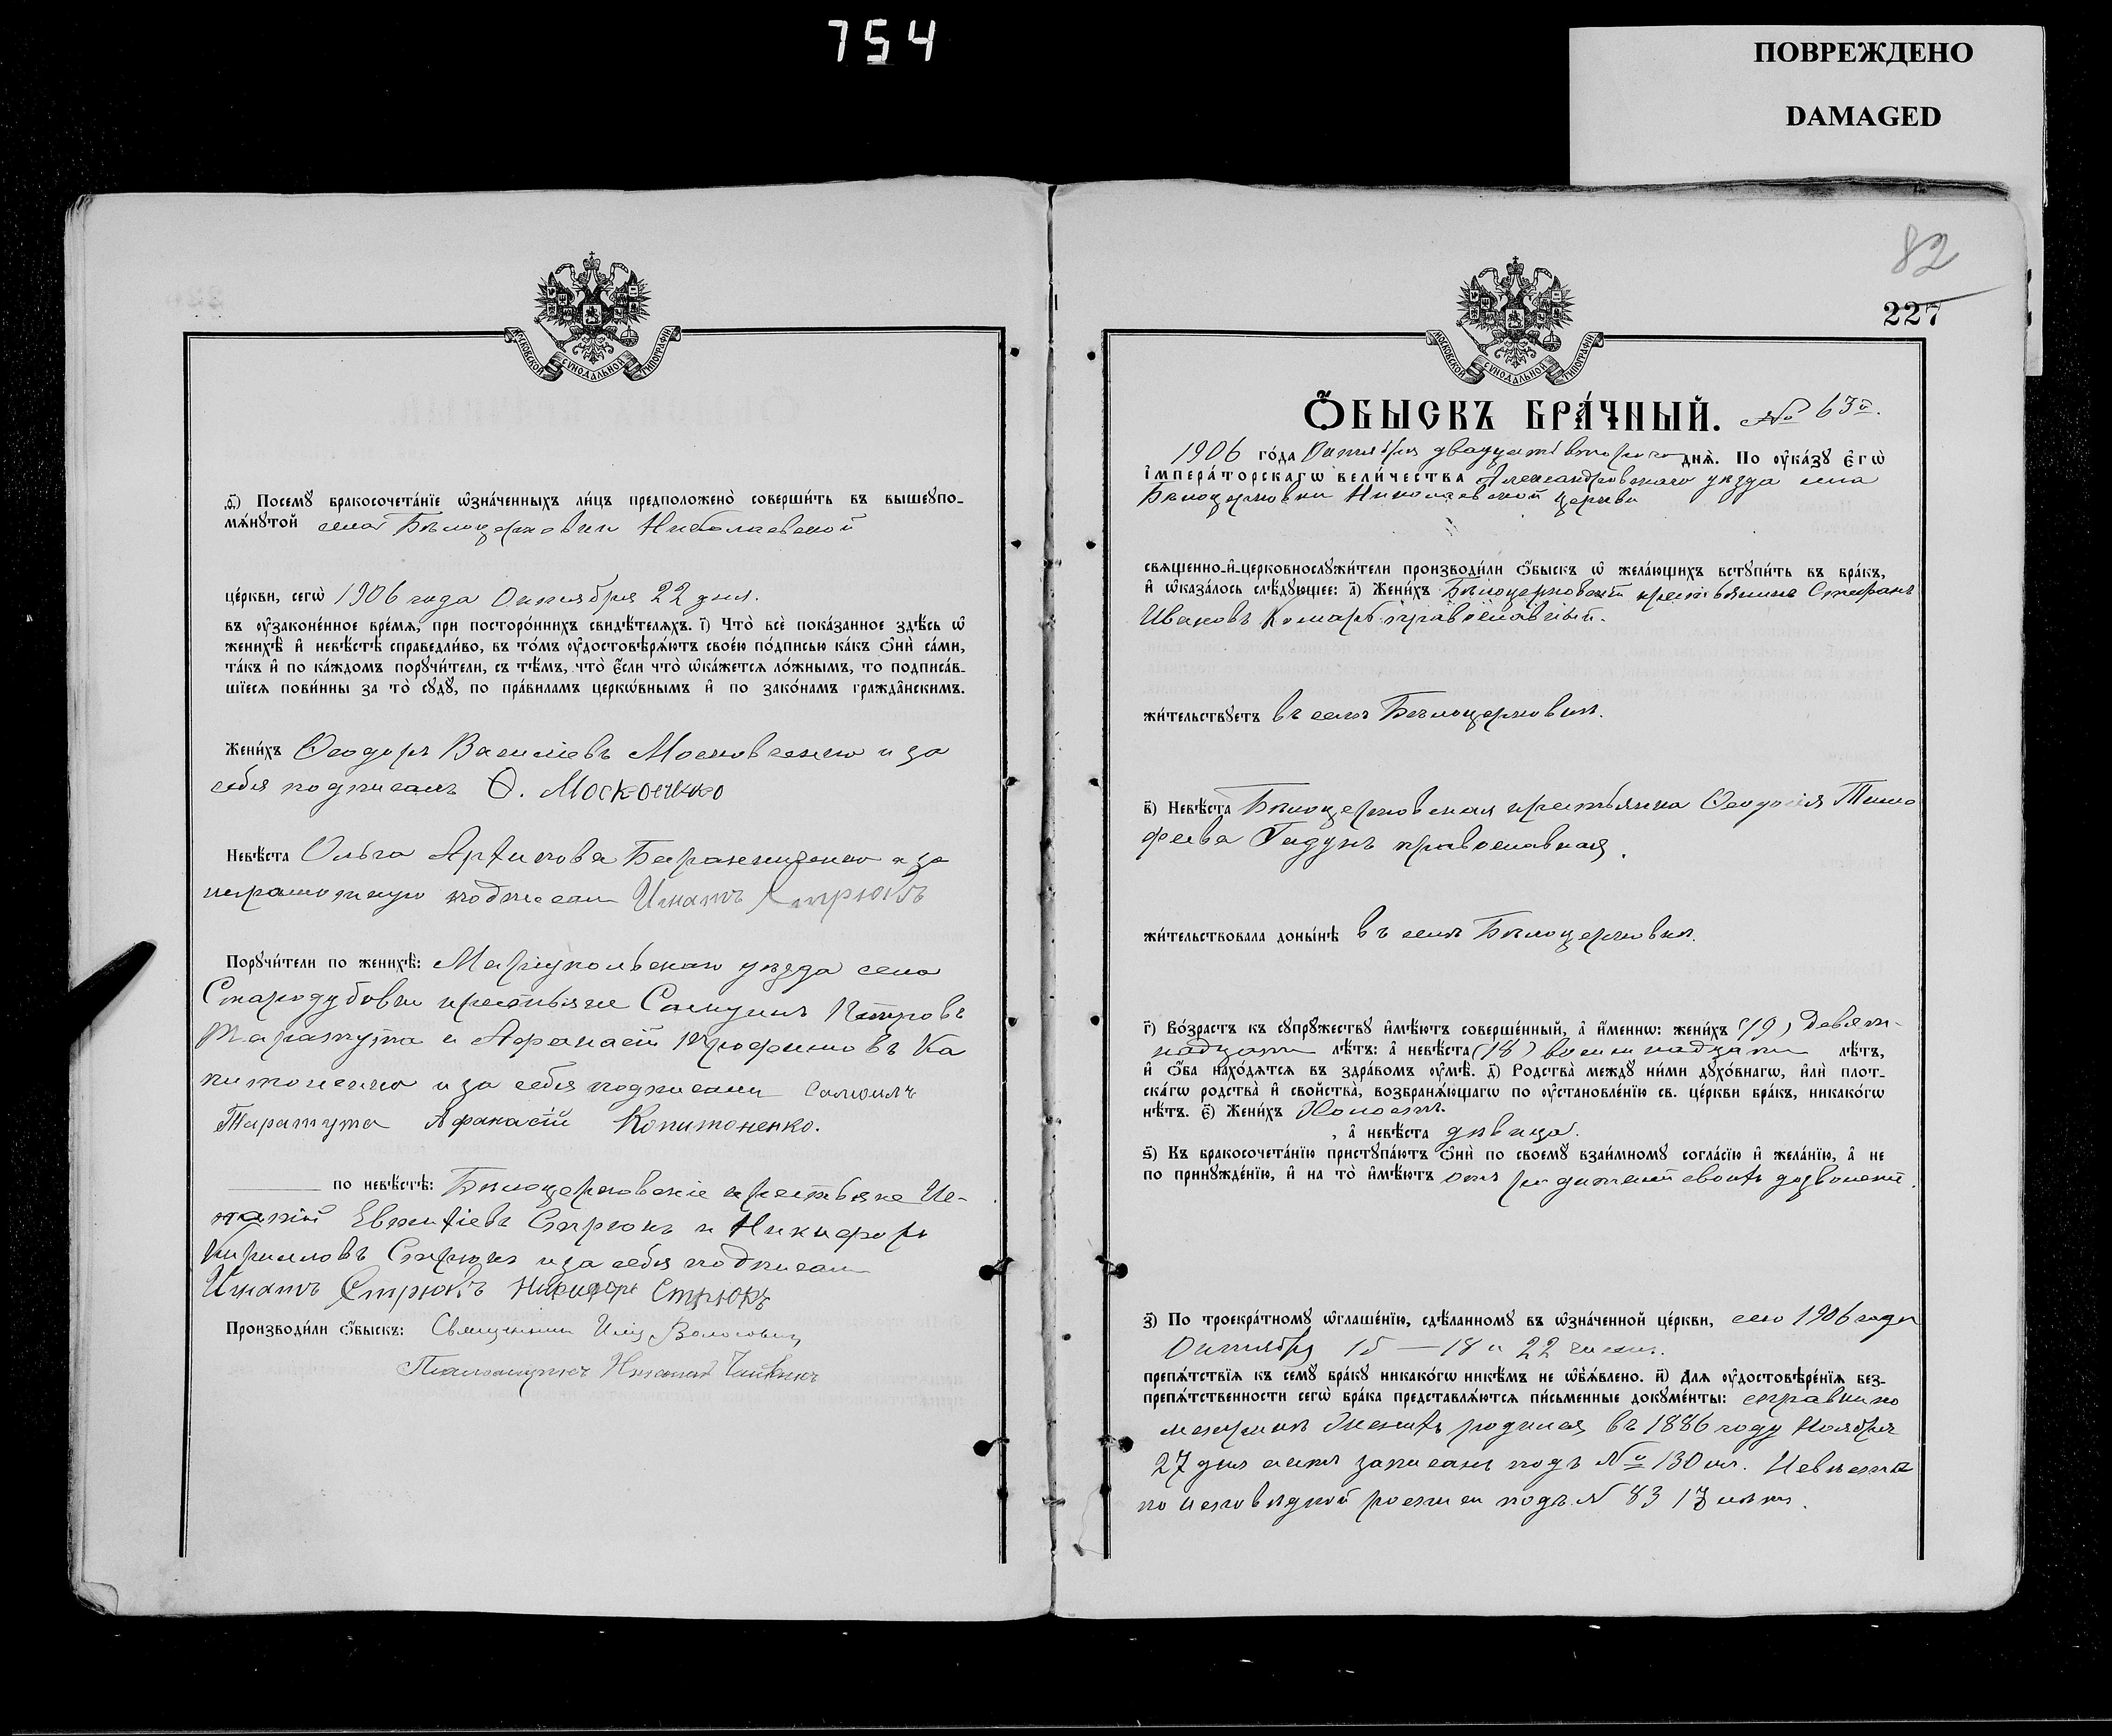 754
ПОВРЕЖДЕНО
DAMAGED
МОСКОВСКОЙ СѴНОДАЛЬНОЙ ТИПОГРАФІИ
ѳ҃) Посемꙋ̀ бракосочета́нїе ѡ҆зна́ченныхъ ли́цъ предположено̀ соверши́ть въ вышеꙋпо-
мѧ́нꙋтой села Бѣлоцерковки Николаевской
це́ркви, сегѡ̀ 1906 года Октября 22 дня.
въ ᲂу҆зако́ненное вре́мѧ, при посторо́ннихъ свидѣ́телѧхъ. і҃) Что̀ всѐ пока́занное здѣ́сь ѡ҆
женихѣ̀ и҆ невѣ́стѣ справедли́во, въ то́мъ ᲂу҆достовѣрѧ́ютъ свое́ю по́дписью ка́къ ѻ҆нѝ са́ми,
та́къ и҆ по ка́ждомъ порꙋчи́тели, съ тѣ́мъ, что̀ є҆́сли что̀ ѡ҆ка́жетсѧ ло́жнымъ, то подписа́в-
шїесѧ пови́нны за то̀ сꙋдꙋ̀, по пра́виламъ церкѡ́внымъ и҆ по зако́намъ гражда̂нскимъ.
Жени́хъ Ѳеодоръ Василіевъ Московченко и за
себя подписалъ Ѳ. Москоченко
Невѣ́ста Ольга Архипова и за
неграмотную подписал Игнатъ Стрюкъ
Порꙋчи́тели по женихѣ̀: Маріупольскаго уѣзда села
Стародубовки крестьяне Самуилъ Петровъ
Таратута и Афанасій Трофимовъ Ка
питоненко и за себя подписали Самоилъ
Таратута Афанасій Копитоненко.
по невѣ́стѣ: Бѣлоцерковскіе крестьяне Иг-
натій Евтихіевъ Стрюкъ и Никифоръ
Кириловъ Стрюкъ и за себя подписали
Игнатъ Стрюкъ Никифоръ Стрюкъ
Производи́ли ѻ҆́быскъ: Священникъ Илія
Псаломщикъ Николай
82
227
МОСКОВСКОЙ СѴНОДАЛЬНОЙ ТИПОГРАФІИ
Ѻ҆́БЫСКЪ БРА́ЧНЫЙ. № 63й.
1906 го́да Октября двадцать второго днѧ̀. По ᲂу҆ка́зꙋ є҆гѡ̀
і҆мпера́торскагѡ вели́чества Александровскаго уезда села
Бѣлоцерковки Николаевской церкви
свѧщенно-и҆-церковнослꙋжи́тели производи́ли ѻ҆́быскъ ѡ҆ жела́ющихъ встꙋпи́ть въ бра́къ,
и҆ ѡ҆каза́лось слѣ́дꙋющее: а҃) Жени́хъ Бѣлоцерковскій крестьянинъ Стефанъ
Ивановъ Комаръ православный.
жи́тельствꙋетъ въ селѣ Бѣлоцерковкѣ.
в҃) Невѣ́ста Бѣлоцерковская крестьянка Ѳеодосія Тимо
феева Гадунъ православная.
жи́тельствовала доны́нѣ въ селѣ Бѣлоцерковкѣ.
г҃) Во́зрастъ къ сꙋпрꙋ́жествꙋ и҆мѣ́ютъ соверше́нный, а҆ и҆́меннѡ: жени́хъ (19) Девят-
надцати лѣ́тъ: а҆ невѣ́ста (18) восемнадцати лѣ́тъ,
и҆ ѻ҆́ба нахо́дѧтсѧ въ здра́вомъ ᲂу҆мѣ̀. д҃) Родства̀ междꙋ̀ ни́ми дꙋхо́внагѡ, и҆лѝ плот-
ска́гѡ родства̀ и҆ сво́йства, возбранѧ́ющагѡ по ᲂу҆становле́нїю св. це́ркви бра́къ, никако́гѡ
нѣ́тъ. є҃) Жени́хъ Холостъ.
, а҆ невѣ́ста дѣвица.
ѕ҃) Къ бракосочета́нїю пристꙋпа́ютъ ѻ҆нѝ по своемꙋ̀ взаи́мномꙋ согла́сїю и҆ жела́нїю, а҆ не
по принꙋжде́нїю, и҆ на то̀ и҆мѣ́ютъ отъ родителей своихъ дозволеніе.
з҃) По троекра́тномꙋ ѡ҆глаше́нїю, сдѣ́ланномꙋ въ ѡ҆зна́ченной це́ркви, сего 1906 года
Октября 15 — 18 и 22 числа.
препѧ́тствїѧ къ семꙋ̀ бра́кꙋ никако́гѡ никѣ́мъ не ѡ҆б̾ѧ́влено. и҃) Длѧ ᲂу҆достовѣре́нїѧ без-
препѧ́тственности сегѡ̀ бра́ка представлѧ́ютсѧ пи́сьменные докꙋме́нты: справки по
метрикѣ Женихъ родился въ 1886 году Ноября
27 дня актъ записанъ подъ № 130 мъ. Невѣста
по исповѣдной росписи подъ № 83 17 лѣтъ.